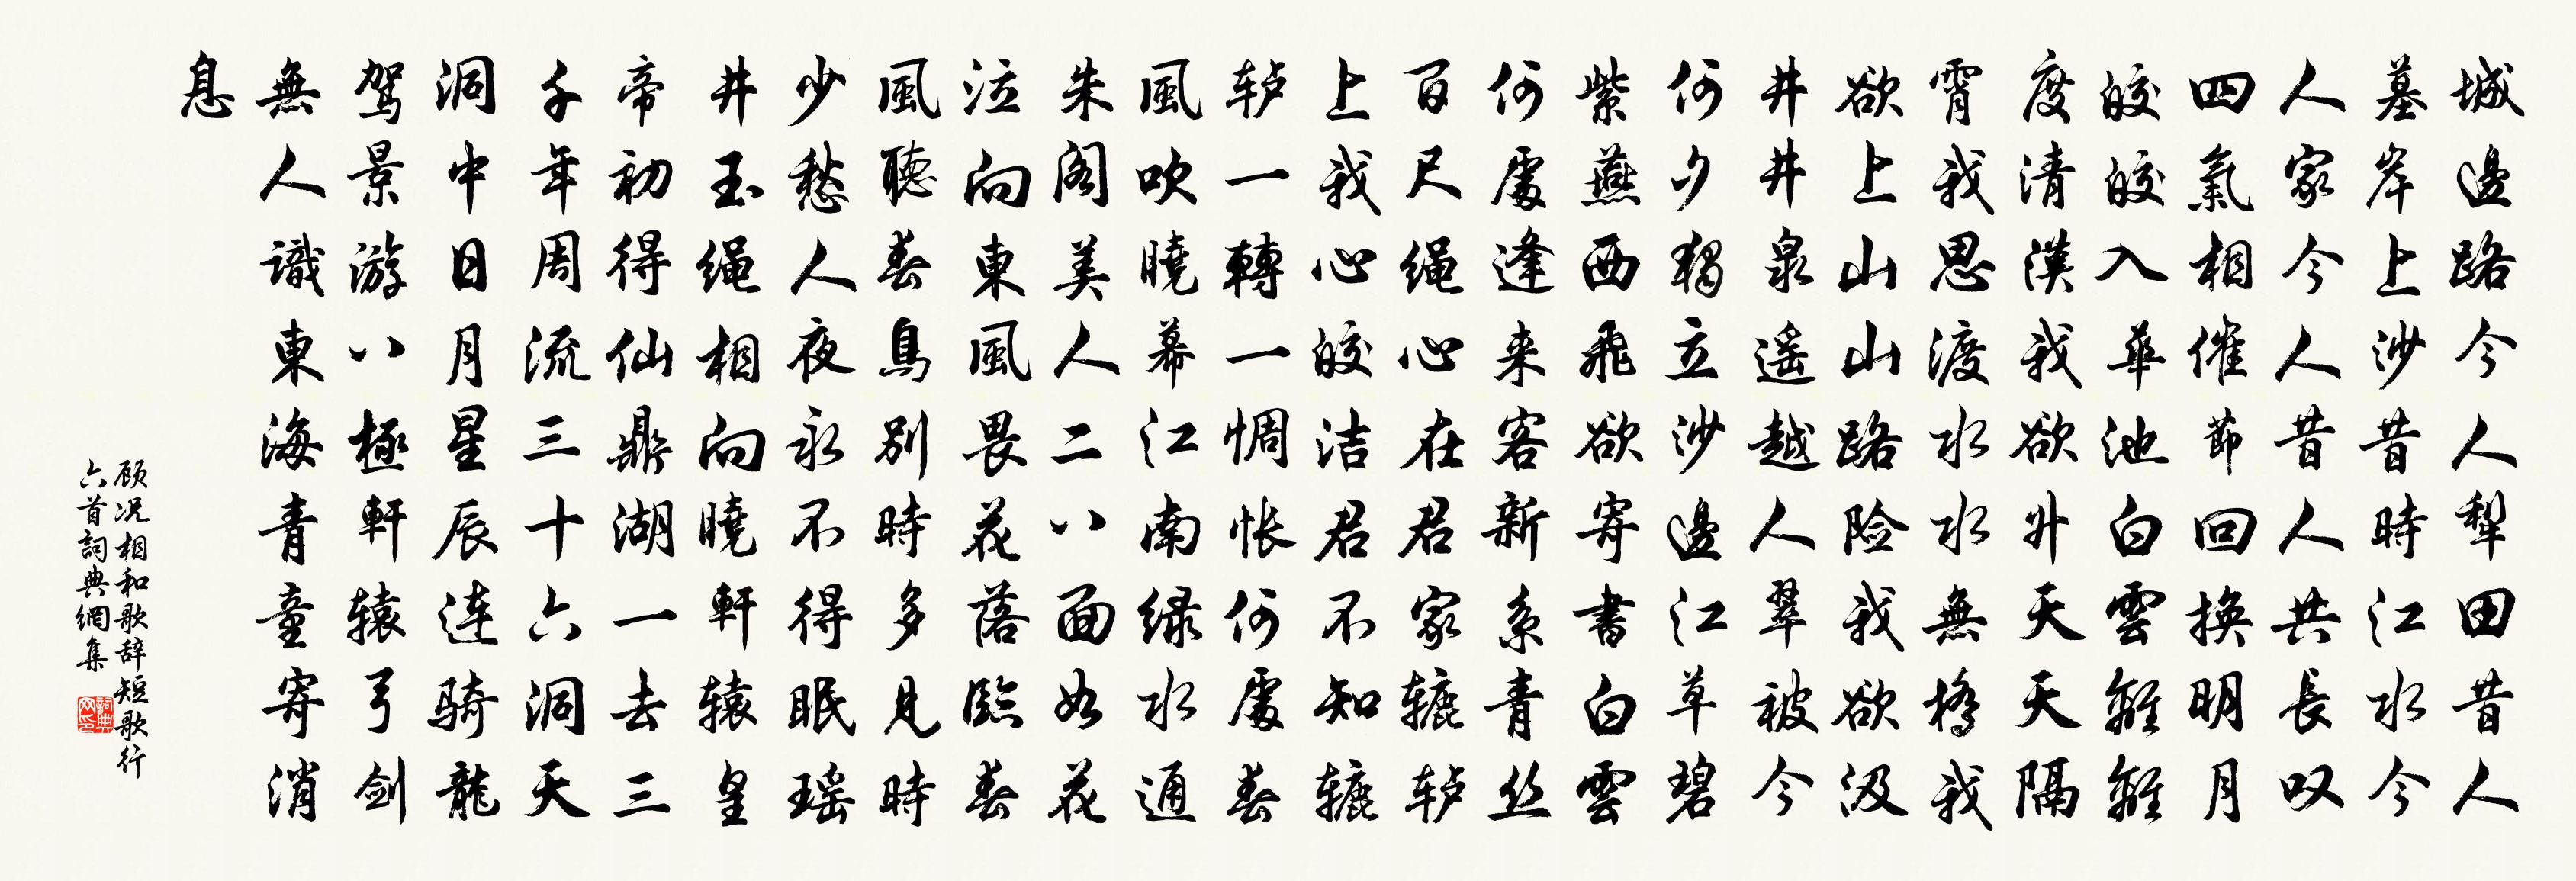 城邊路今人犁田昔人
墓岸上沙昔時江水今
人家今人昔人共長叹
四氣相催節回換明月
皎皎入華池白雲離離
度清漢我欲升天天隔
霄我思渡水水無橋我
欲上山山路险我欲汲
井井泉遥越人翠被今
何夕獨立沙邊江草碧
紫燕西飛欲寄書白雲
何處逢来客新系青丝
百尺绳心在君家辘轳
上我心皎洁君不知辘
轳一轉一惆怅何處春
風吹曉幕江南绿水通
朱阁美人二八面如花
泣向東風畏花落臨春
風聽春鳥别時多見時
少愁人夜永不得眠瑶
井玉绳相向曉軒辕皇
帝初得仙鼎湖一去三
千年周流三十六洞天
洞中日月星辰连骑龍
驾景游八極軒辕弓剑
無人識東海青童寄消
息
顾况相和歌辞短歌行
六首詞典網集
詞典网印